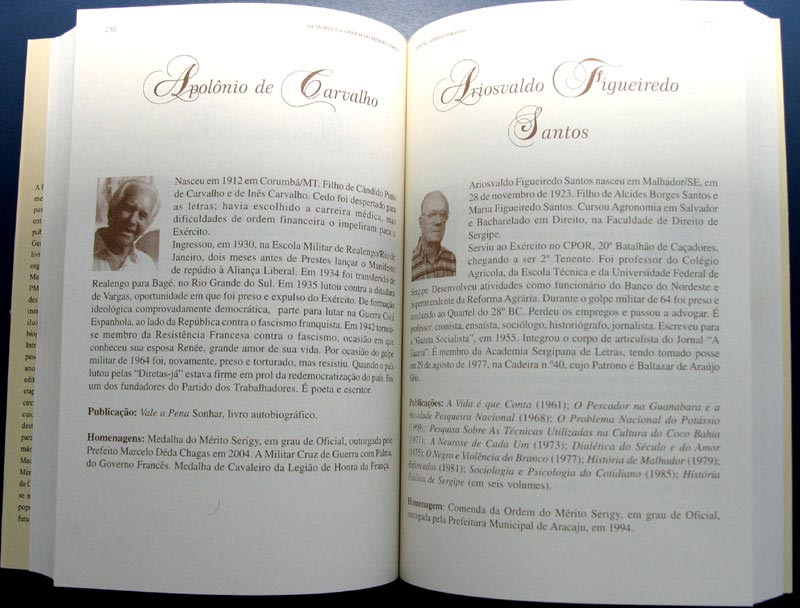 230
Apolônio de Carvalho
Nasceu em 1912 em Corumbá/MT. Filho de Cândido Pinto
de Carvalho e de Inês Carvalho. Cedo foi despertado para
as letras; havia escolhido a carreira médica, mas
dificuldades de ordem financeira o impeliram para o
Exército.
Ingressou, em 1930, na Escola Militar de Realengo/Rio de
Janeiro, dois meses antes de Prestes lançar o Manifesto
de repúdio à Aliança Liberal. Em 1934 foi transferido de
Realengo para Bagé, no Rio Grande do Sul. Em 1935 lutou contra a ditadura
de Vargas, oportunidade em que foi preso e expulso do Exército. De formação
ideológica comprovadamente democrática, parte para lutar na Guerra Civil
Espanhola, ao lado da República contra o fascismo franquista. Em 1942 tornou-
se membro da Resistência Francesa contra o fascismo, ocasião em que
conheceu sua esposa Renée, grande amor de sua vida. Por ocasião do golpe
militar de 1964 foi, novamente, preso e torturado, mas resistiu. Quando o país
lutou pelas "Diretas-já" estava firme em prol da redemocratização do país. Foi
um dos fundadores do Partido dos Trabalhadores. É poeta e escritor.
Publicação: Vale a Pena Sonhar, livro autobiográfico.
Homenagens: Medalha do Mérito Serigy, em grau de Oficial, outorgada pelo
Prefeito Marcelo Déda Chagas em 2004. A Militar Cruz de Guerra com Palma,
do Governo Francês. Medalha de Cavaleiro da Legião de Honra da França.
Ariosvaldo Figueiredo
Santos
Ariosvaldo Figueiredo Santos nasceu em Malhador/SE, em
28 de novembro de 1923. Filho de Alcides Borges Santos e
Maria Figueiredo Santos. Cursou Agronomia em Salvador
e Bacharelado em Direito, na Faculdade de Direito de
Sergipe.
Serviu ao Exército no CPOR, 20º Batalhão de Caçadores,
chegando a ser 2º Tenente. Foi professor do Colégio
Agrícola, da Escola Técnica e da Universidade Federal de
Sergipe. Desenvolveu atividades como funcionário do Banco do Nordeste e
Superintendente da Reforma Agrária. Durante o golpe militar de 64 foi preso e
conduzido ao Quartel do 28º BC. Perdeu os empregos e passou a advogar. É
professor, cronista, ensaísta, sociólogo, historiógrafo, jornalista. Escreveu para
a "Gazeta Socialista", em 1955. Integrou o corpo de articulista do Jornal "A
Gazeta". É membro da Academia Sergipana de Letras, tendo tomado posse
em 29 de agosto de 1977, na Cadeira n.º40, cujo Patrono é Baltazar de Araújo
Góis.
Publicações: A Vida é que Conta (1961); O Pescador na Guanabara e a
Atividade Pesqueira Nacional (1968); O Problema Nacional do Potássio
(1969); Pesquisa Sobre As Técnicas Utilizadas na Cultura do Coco Bahia
(1971); A Neurose de Cada Um (1973); Dialética do Século e do Amor
(1975); O Negro e Violência do Branco (1977); História de Malhador (1979);
Enforcados (1981); Sociologia e Psicologia do Cotidiano (1985); História
Política de Sergipe (em seis volumes).
Homenagem: Comenda da Ordem do Mérito Serigy, em grau de Oficial,
outorgada pela Prefeitura Municipal de Aracaju, em 1994.